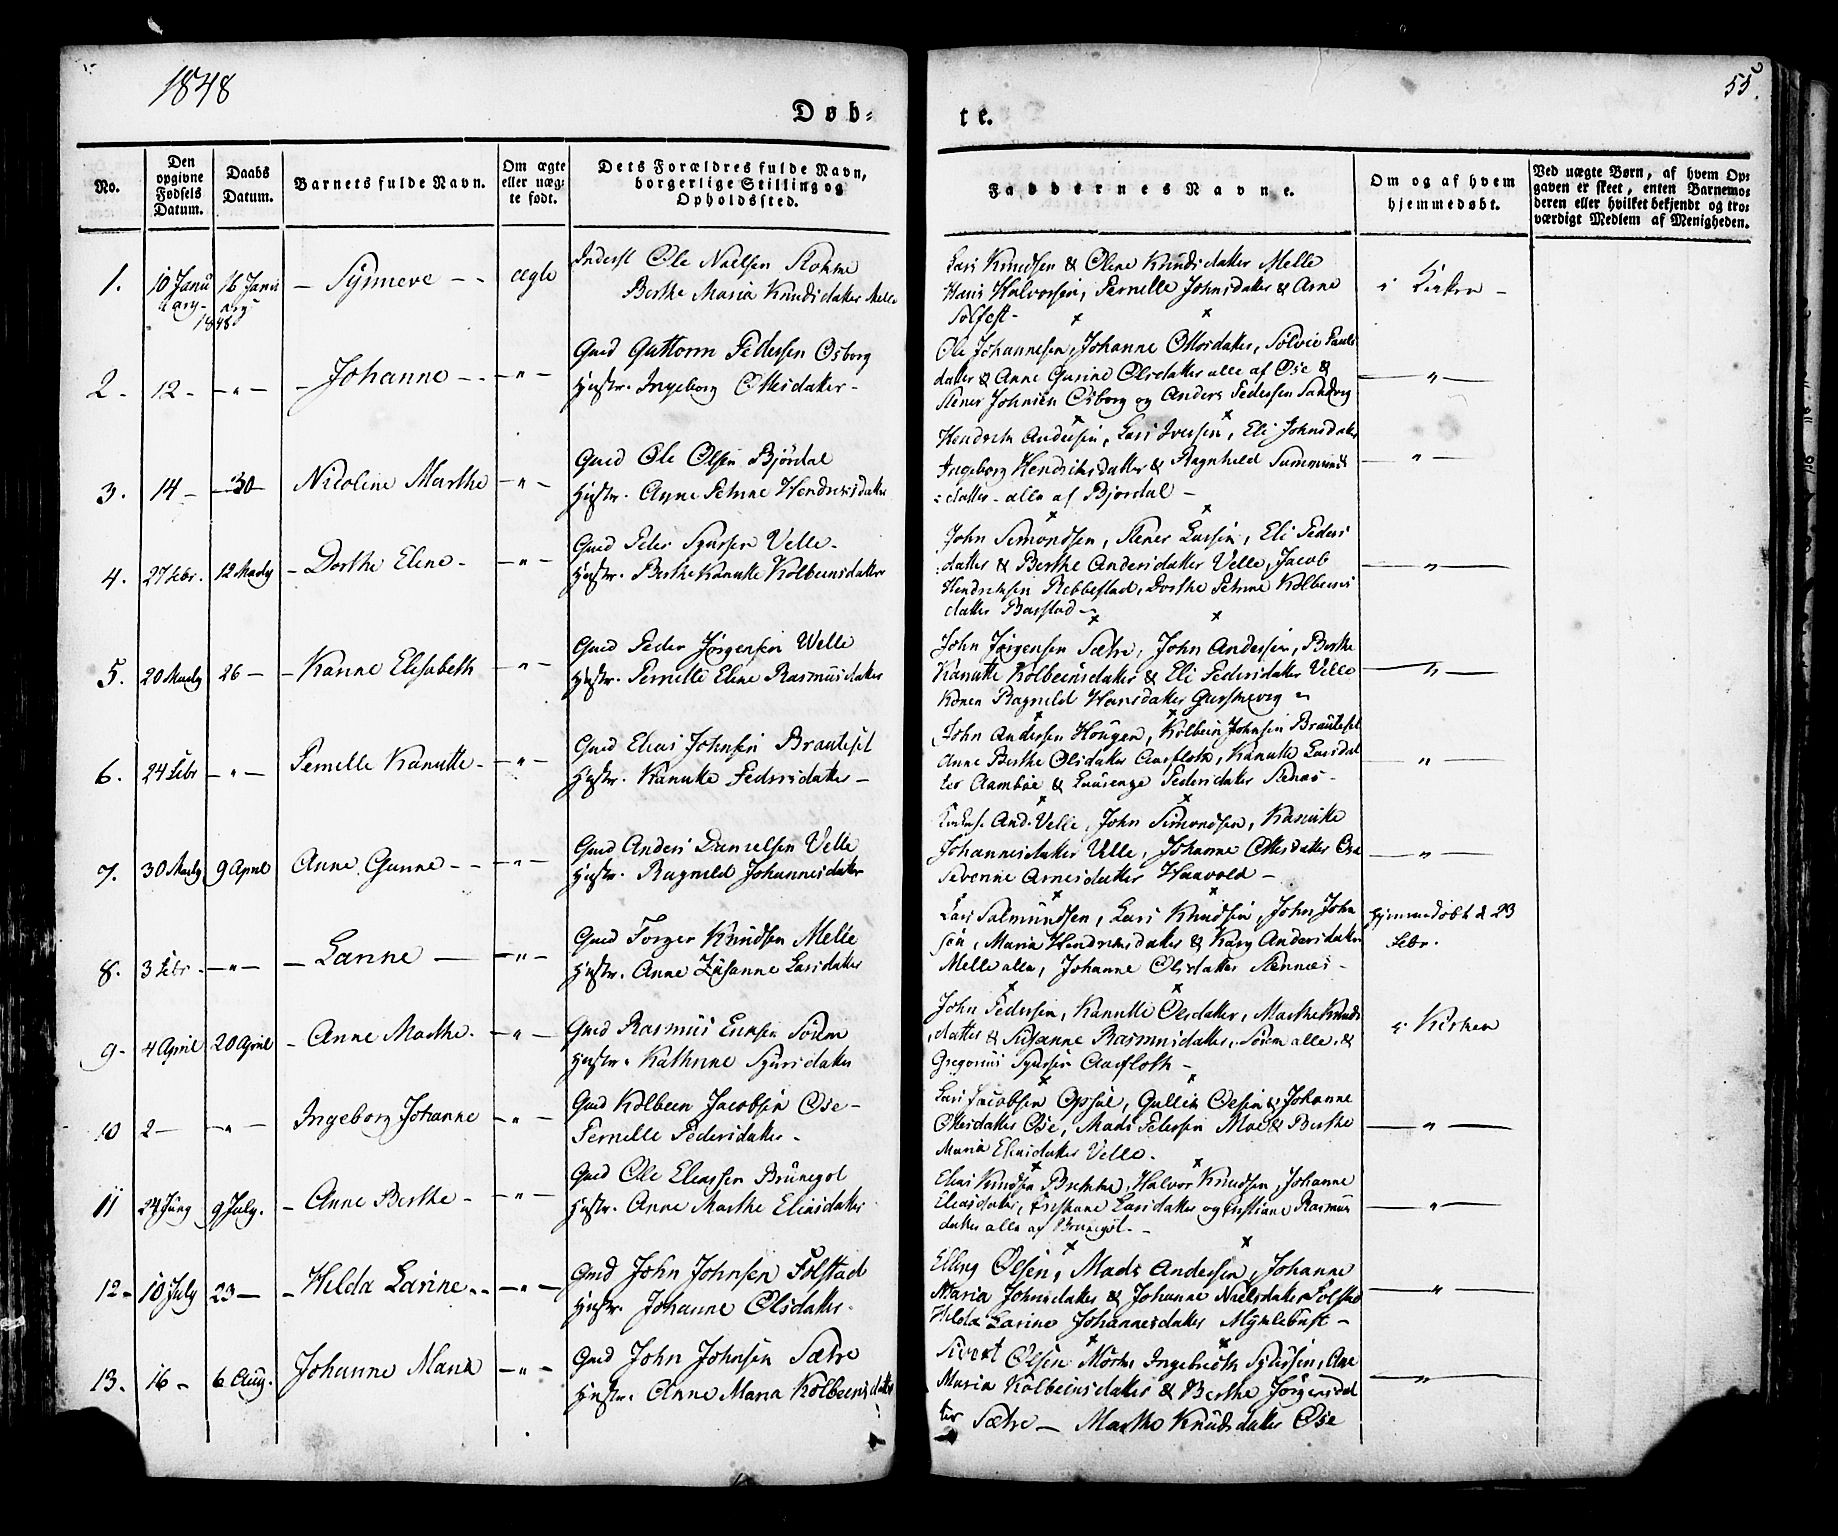 1848
55.
Døb=
te.
No.
Den opgivne Fødsels Datum.
Daabs Datum.
Barnets fulde Navn.
Om ægte eller uæg= te født.
Dets Forældres fulde Navn, borgerlige Stilling og Opholdssted.
Faddernes Navne.
Om og af hvem hjemmedøbt.
Ved uægte Børn, af hvem Op= gaven er skeet, enten Barnemo= deren eller hvilket bekjendt og tro= værdigt Medlem af Menigheden.
1. 10 Janu 16 Janu – Synneve – – ægte Inderst Ole Nielsen
uary 1848 ary Berthe Maria Knudsdatter Melle
Lars Knudsen & Oline Knudsdatter Melle
Hans Halvorsen, Pernelle Johnsdatter & Arne
i Kirken –
2 – 12 – – " – – Johanne – – – " – Gmd Guttorm Pedersen Osborg
Hustr. Ingeborg Ottesdatter –
Ole Johannesen, Johanne Ottesdatter,
datter & Anne Gurine Olsdatter alle af Øse &
Stener Johnsen Osborg og Anders Pedersen Sandvig
– " –
3. 14 – 30 – Nicoline Marthe – " – Gmd Ole Olsen Bjørdal
Hustr. Anne Petrine Hendriksdatter
Hendrik Andersen, Lars Iversen, Eli Johnsdatter
Ingeborg Hendriksdatter & Ragnhild
datter – alle af Bjørdal –
– " –
4. 27 Febr. 12 Marty – Dorthe Eline – – " – Gmd Peter Sjursen Velle –
Hustr. Berthe Kanutte Kolbeensdatter
John Simondsen, Stener Larsen, Eli Peders
datter & Berthe Andersdatter Velle, Jacob
Hendriksen Rebbestad, Dorthe Petrine Kolbeens
datter Barstad –
– " –
5. 20 Marty 26 – – Karine Elisabeth – " – Gmd Peder Jørgensen Welle
Hustr. Pernelle Eline Rasmusdatter
John Jørgensen Sætre, John Andersen, Berthe
Kanutte Kolbeensdatter & Eli Pedersdatter Velle
Konen Ragnild Hansdatter
– " –
6. 24 Febr – " – Pernelle Kanutte – – " – Gmd Elias Johnsen Brauteset
Hustr. Kanutte Pedersdatter –
John Andersen Hougen, Kolbein Johnsen Brauteset
Anne Berthe Olsdatter Aarfloth, Kanutte Larsdat
ter Aambøe & Pedersdatter
– " –
7. 30 Marty 9 April Anne Gurine – – – " – Gmd Anders Danielsen Velle
Hustr. Ragnild Johannesdatter
And. Velle, John Simondsen, Kanutte
Johannesdatter Velle, Johanne Ottesdatter Øse
Sivenne Arnesdatter Haavold –
– " –
8. 3 Febr – – " – – Larine – – " – Gmd Torger Knudsen Melle
Hustr. Anne Susanne Larsdatter
Lars Salmundsen, Lars Knudsen, John John
søn, Maria Hendriksdatter & Kary Andersdatter
Melle alle, Johanne Olsdatter Stennes –
Hjemmedøbt d 23
Febr.
9 – 4 April 20 April – Anne Marthe – – " – Gmd Rasmus Ensen
Hustr. Kathrine Sjursdatter
John Pedersen, Kanutte Olsdatter, Marthe Knuds
datter & Susanne Rasmusdatter, alle &
Gregorius Sjursen Aarfloth –
i Kirken
10 2 – – " – Ingeborg Johanne – " – Gmd Kolbeen Jacobsen Øse –
Pernelle Pedersdatter –
Lars Jacobsen Opsal, Gullik Olsen & Johanne
Ottesdatter Øse, Mads Petersen Moe & Berthe
Maria Eliasdatter Velle –
– " –
11 24 Juny 9 July. – Anne Berthe – – " – Gmd Ole Eliassen Brunegot
Hustr. Anne Marthe Eliasdatter
Elias Knudsen Brekke, Halvor Knudsen, Johanne
Eliasdatter, Larsdatter og Rasmus
datter alle af Brunegot –
– " –
12 – 10 July 23 – – Hilda Larine – – – " – Gmd John Johnsen Folstad
Hustr. Johanne Olsdatter –
Elling Olsen, Mads Andersen, Johanne
Maria Johnsdatter & Johanne Nielsdatter Folstad
Hilda Larine Johannesdatter Myklebust –
– " –
13. 16 – 6 Aug. Johanne Maria – " – Gmd John Johnsen Sætre
Hustr. Anne Maria Kolbeensdatter
Sivert Olsen Ingebrigth, Ane
Maria Kolbeensdatter & Berthe Jørgensdat
ter Sætre – Marthe Knudsdatter Øse
– " –